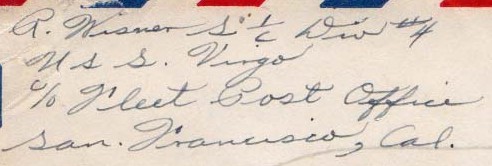 R. Wisner S 1/c Div #4
U S S. Virgo
c/o Fleet Post Office
San. Francisco, Cal.